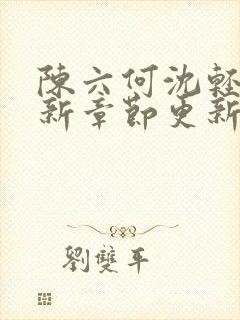 陳六何沈輕
新章節更新
劉雙平